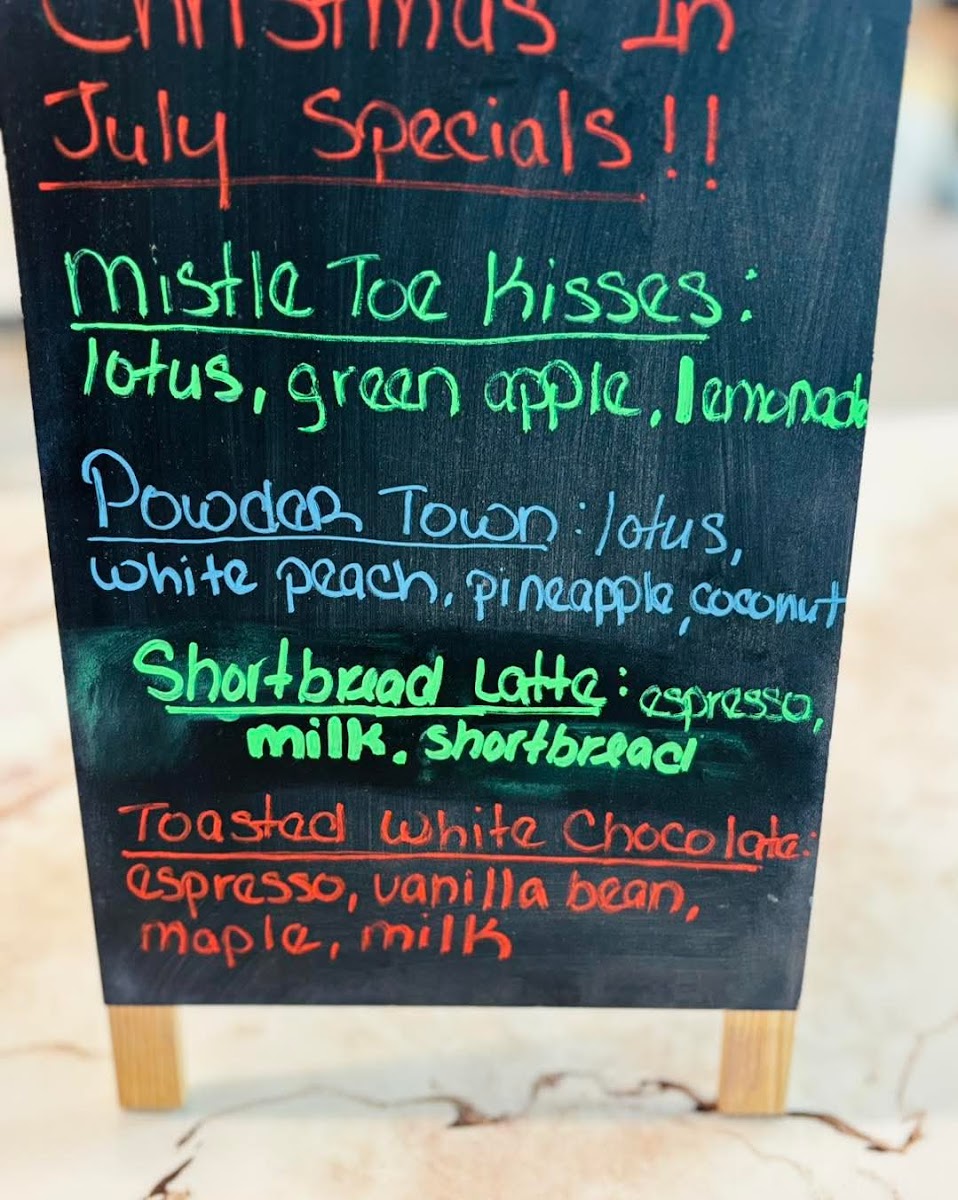 Christmas In
July Specials!!
Mistle Toe Kisses:
lotus, green apple, lemonade
Powder Town: lotus,
white peach, pineapple, coconut
Shortbread Latte: espresso,
milk, shortbread
Toasted White Chocolate:
espresso, vanilla bean,
maple, milk